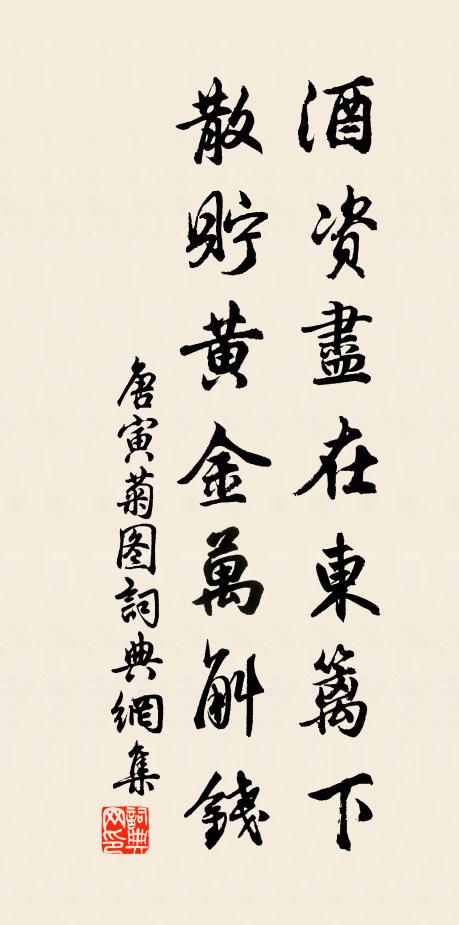 酒資盡在東籬下
散貯黄金萬斛錢
唐寅菊图詞典網集
詞典网印